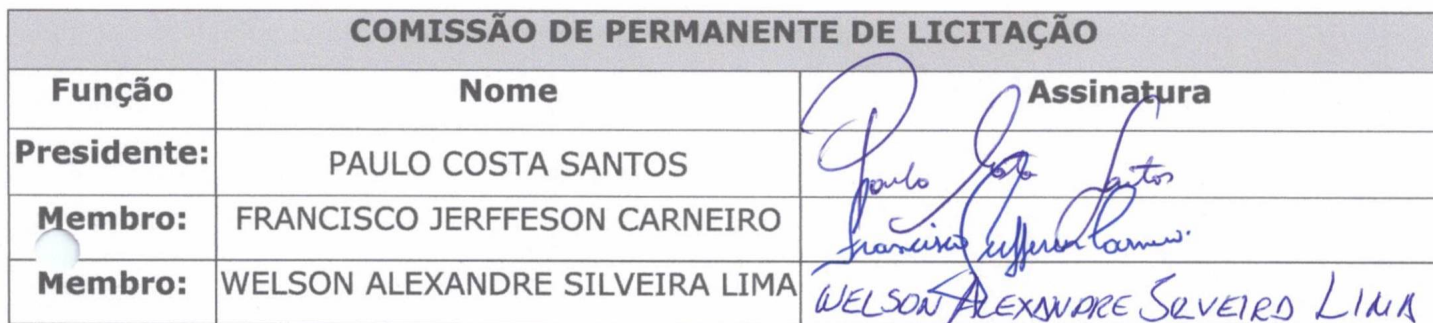 COMISSÃO DE PERMANENTE DE LICITAÇÃO
Função Nome Assinatura
Presidente: PAULO COSTA SANTOS Paulo Costa Santos
Membro: FRANCISCO JERFFESON CARNEIRO Francisco Jefferson Carneiro.
Membro: WELSON ALEXANDRE SILVEIRA LIMA WELSON ALEXANDRE SILVEIRA LIMA